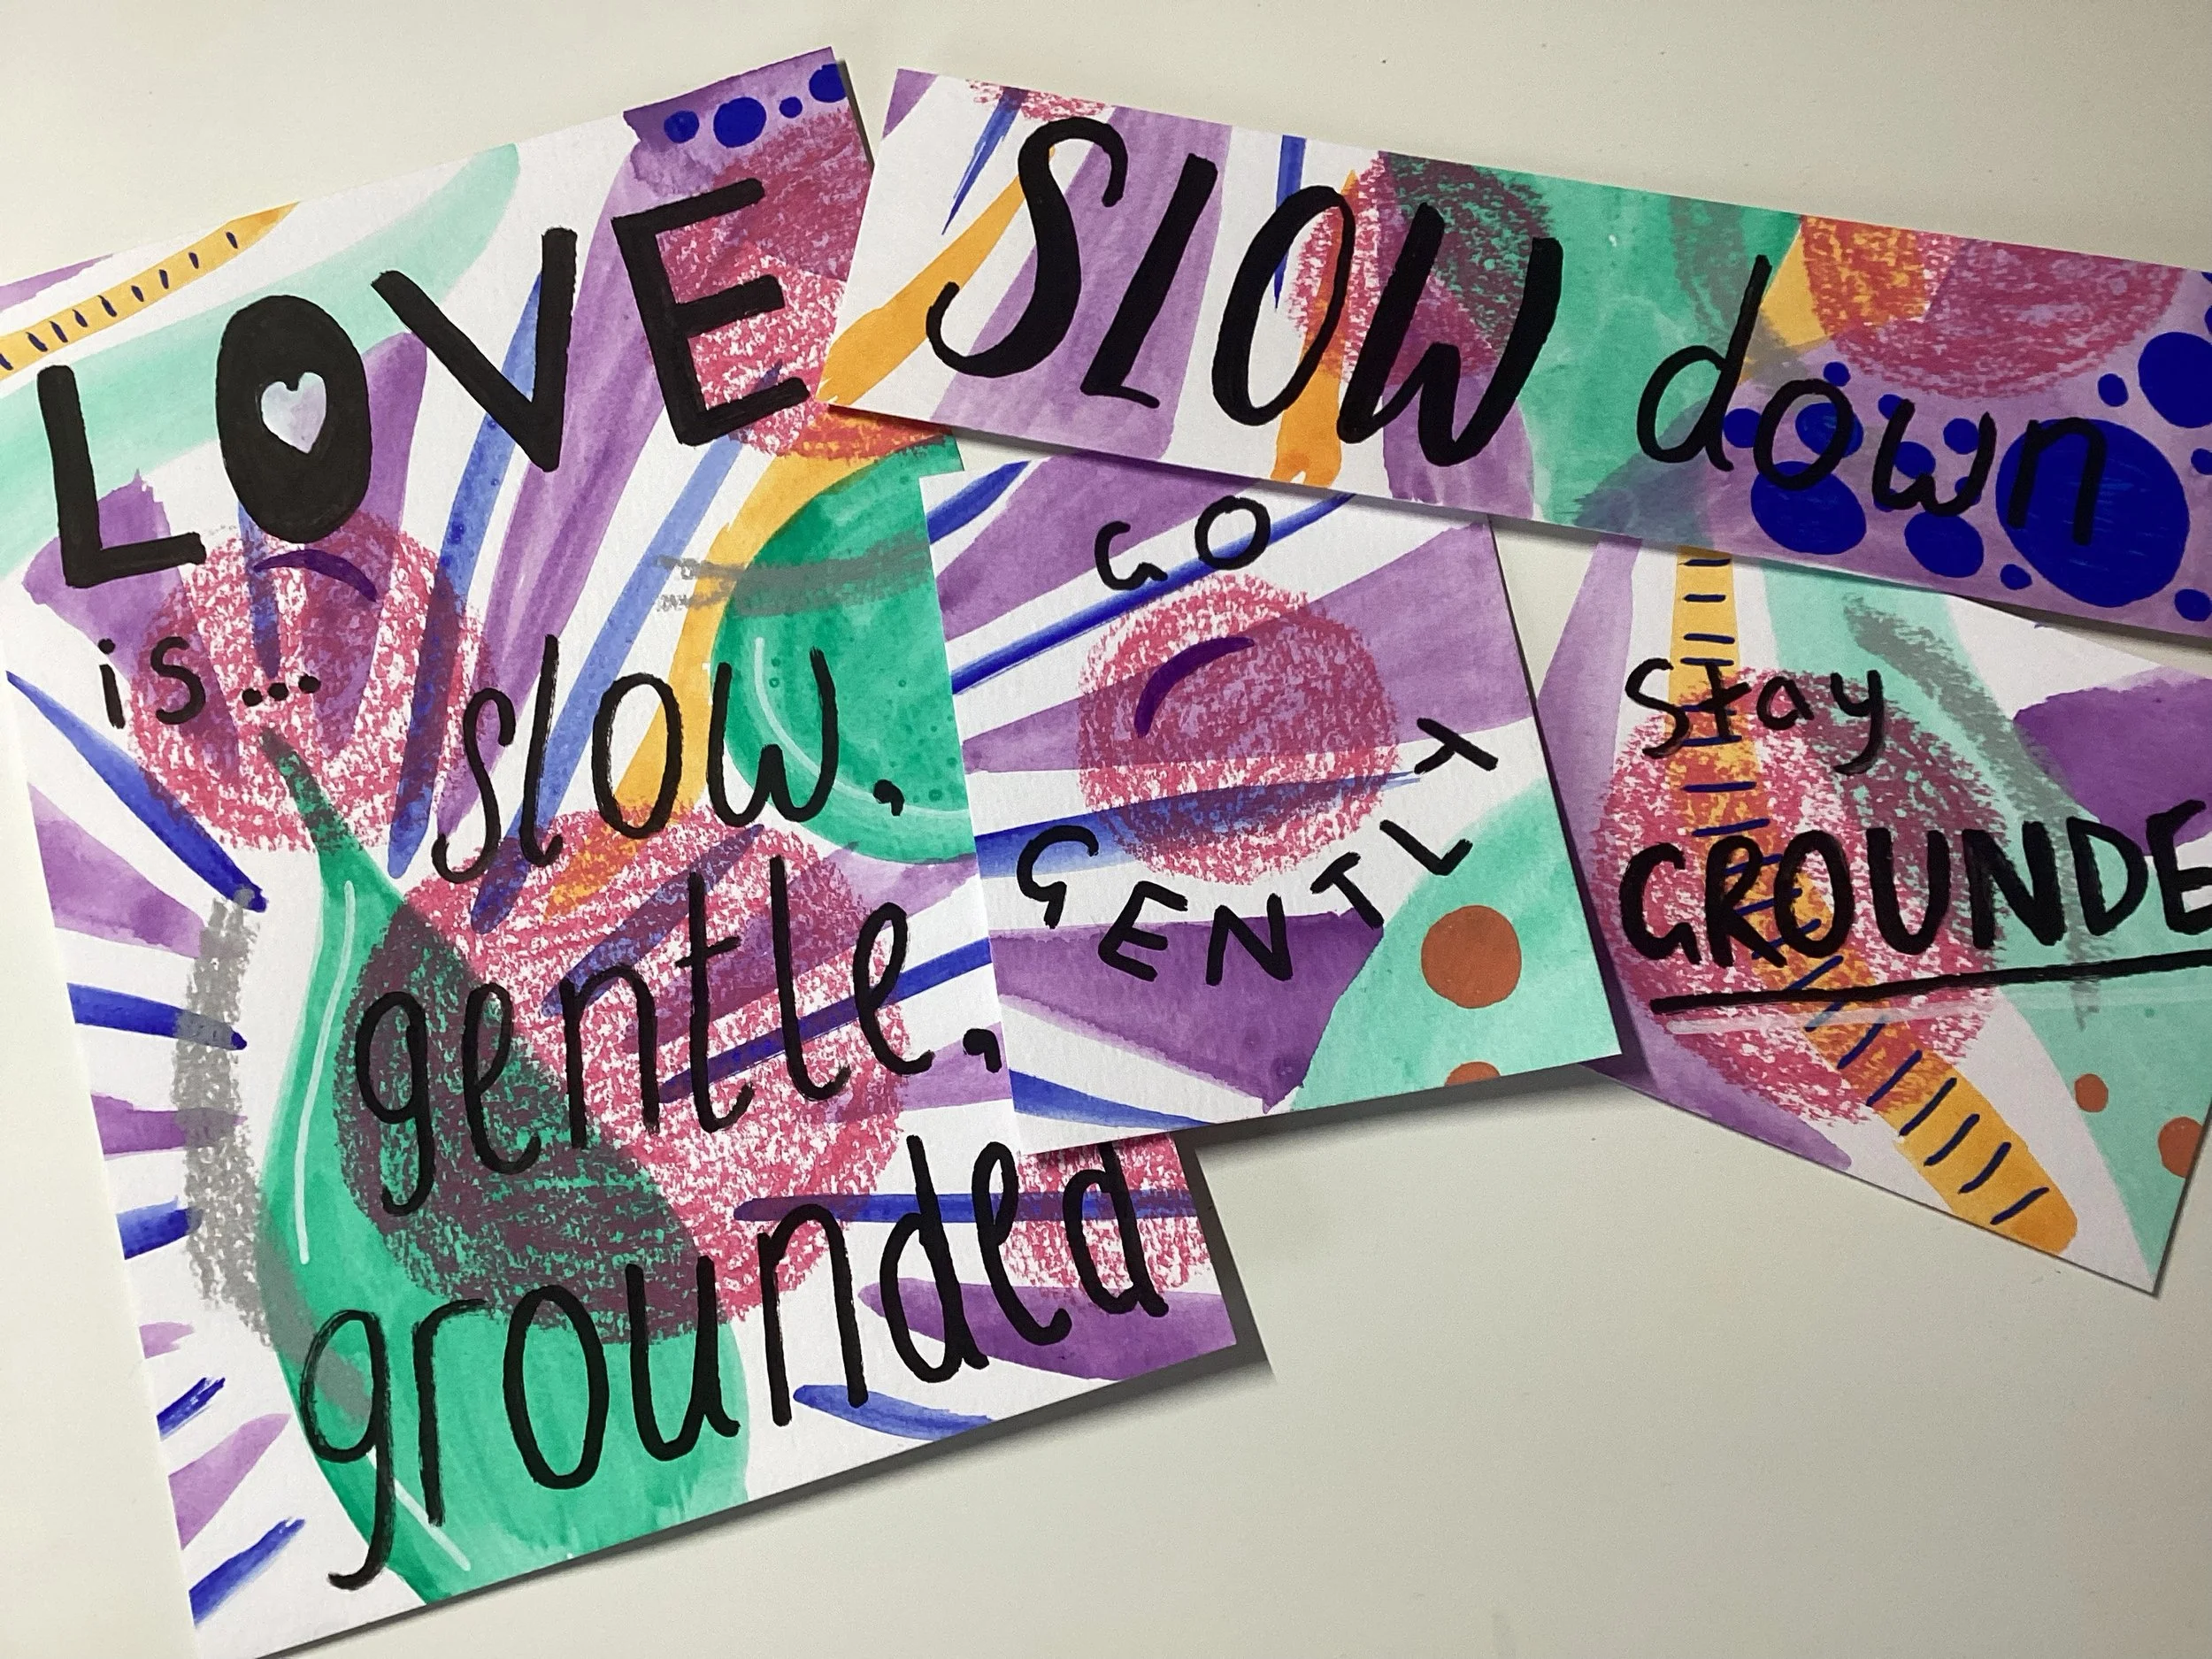 LOVE
is...
slow,
gentle,
grounded
SLOW down
GO
GENTLY
Stay
GROUNDE